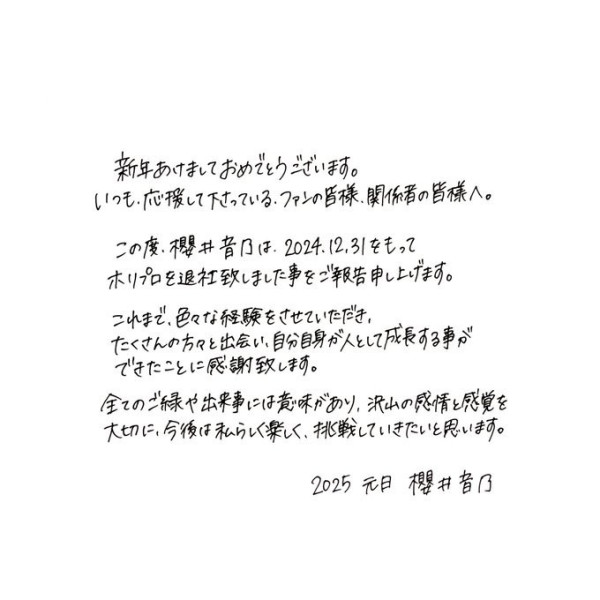 新年あけましておめでとうございます。
いつも、応援して下さっている、ファンの皆様、関係者の皆様へ。
この度、櫻井音乃は、2024.12.31をもって
ホリプロを退社致しました事をご報告申し上げます。
これまで、色々な経験をさせていただき、
たくさんの方々と出会い、自分自身が人として成長する事が
できたことに感謝致します。
全てのご縁や出来事には意味があり、沢山の感情と感覚を
大切に、今後は私らしく楽しく、挑戦していきたいと思います。
2025 元日 櫻井音乃